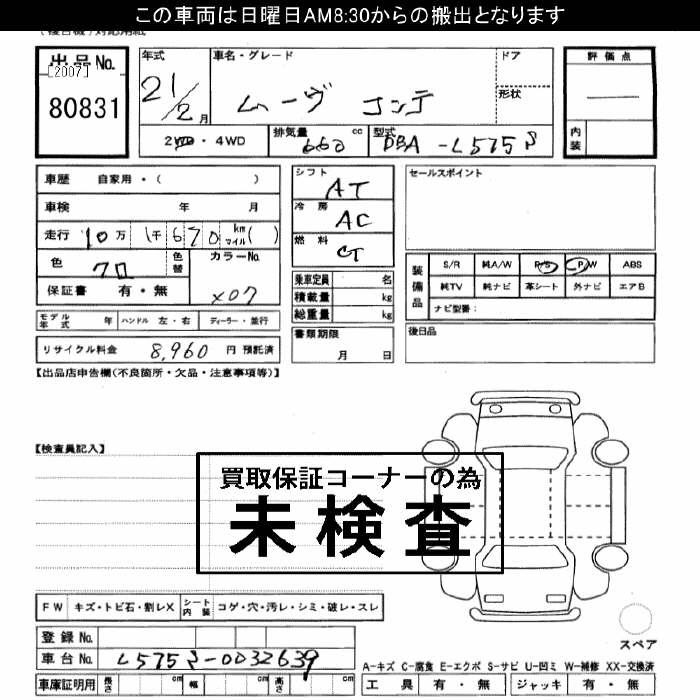 この車両は日曜日AM8:30からの搬出となります
出品No.
[2007]
80831
年式 21/2月
車名・グレード ムーヴ コンテ
ドア
形状
2WD・4WD
排気量 660 cc
型式 DBA-L575S
評価点 —
内装
車歴 自家用・( )
車検 年 月
走行 10万 1千670 km マイル( )
色 クロ
色替
カラーNo. X07
保証書 有・無
モデル年式 年 ハンドル 左・右 ディーラー・並行
リサイクル料金 8,960 円 預託済
シフト AT
冷房 AC
燃料
乗車定員 名
積載量 kg
総重量 kg
書類期限
月 日
セールスポイント
装備品
S/R 純A/W P/S P/W ABS
純TV 純ナビ 革シート 外ナビ エアB
ナビ型番:
後日品
【出品店申告欄(不良箇所・欠品・注意事項等)】
【検査員記入】
買取保証コーナーの為
未検査
FW キズ・トビ石・割レX
シート内装 コゲ・穴・汚レ・シミ・破レ・スレ
登録No.
車台No. L575S-0032639
車庫証明用 長さ cm 幅 cm 高さ cm
スペア
A-キズ C-腐食 E-エクボ S-サビ U-凹ミ W-補修 XX-交換済
工具 有・無 ジャッキ 有・無